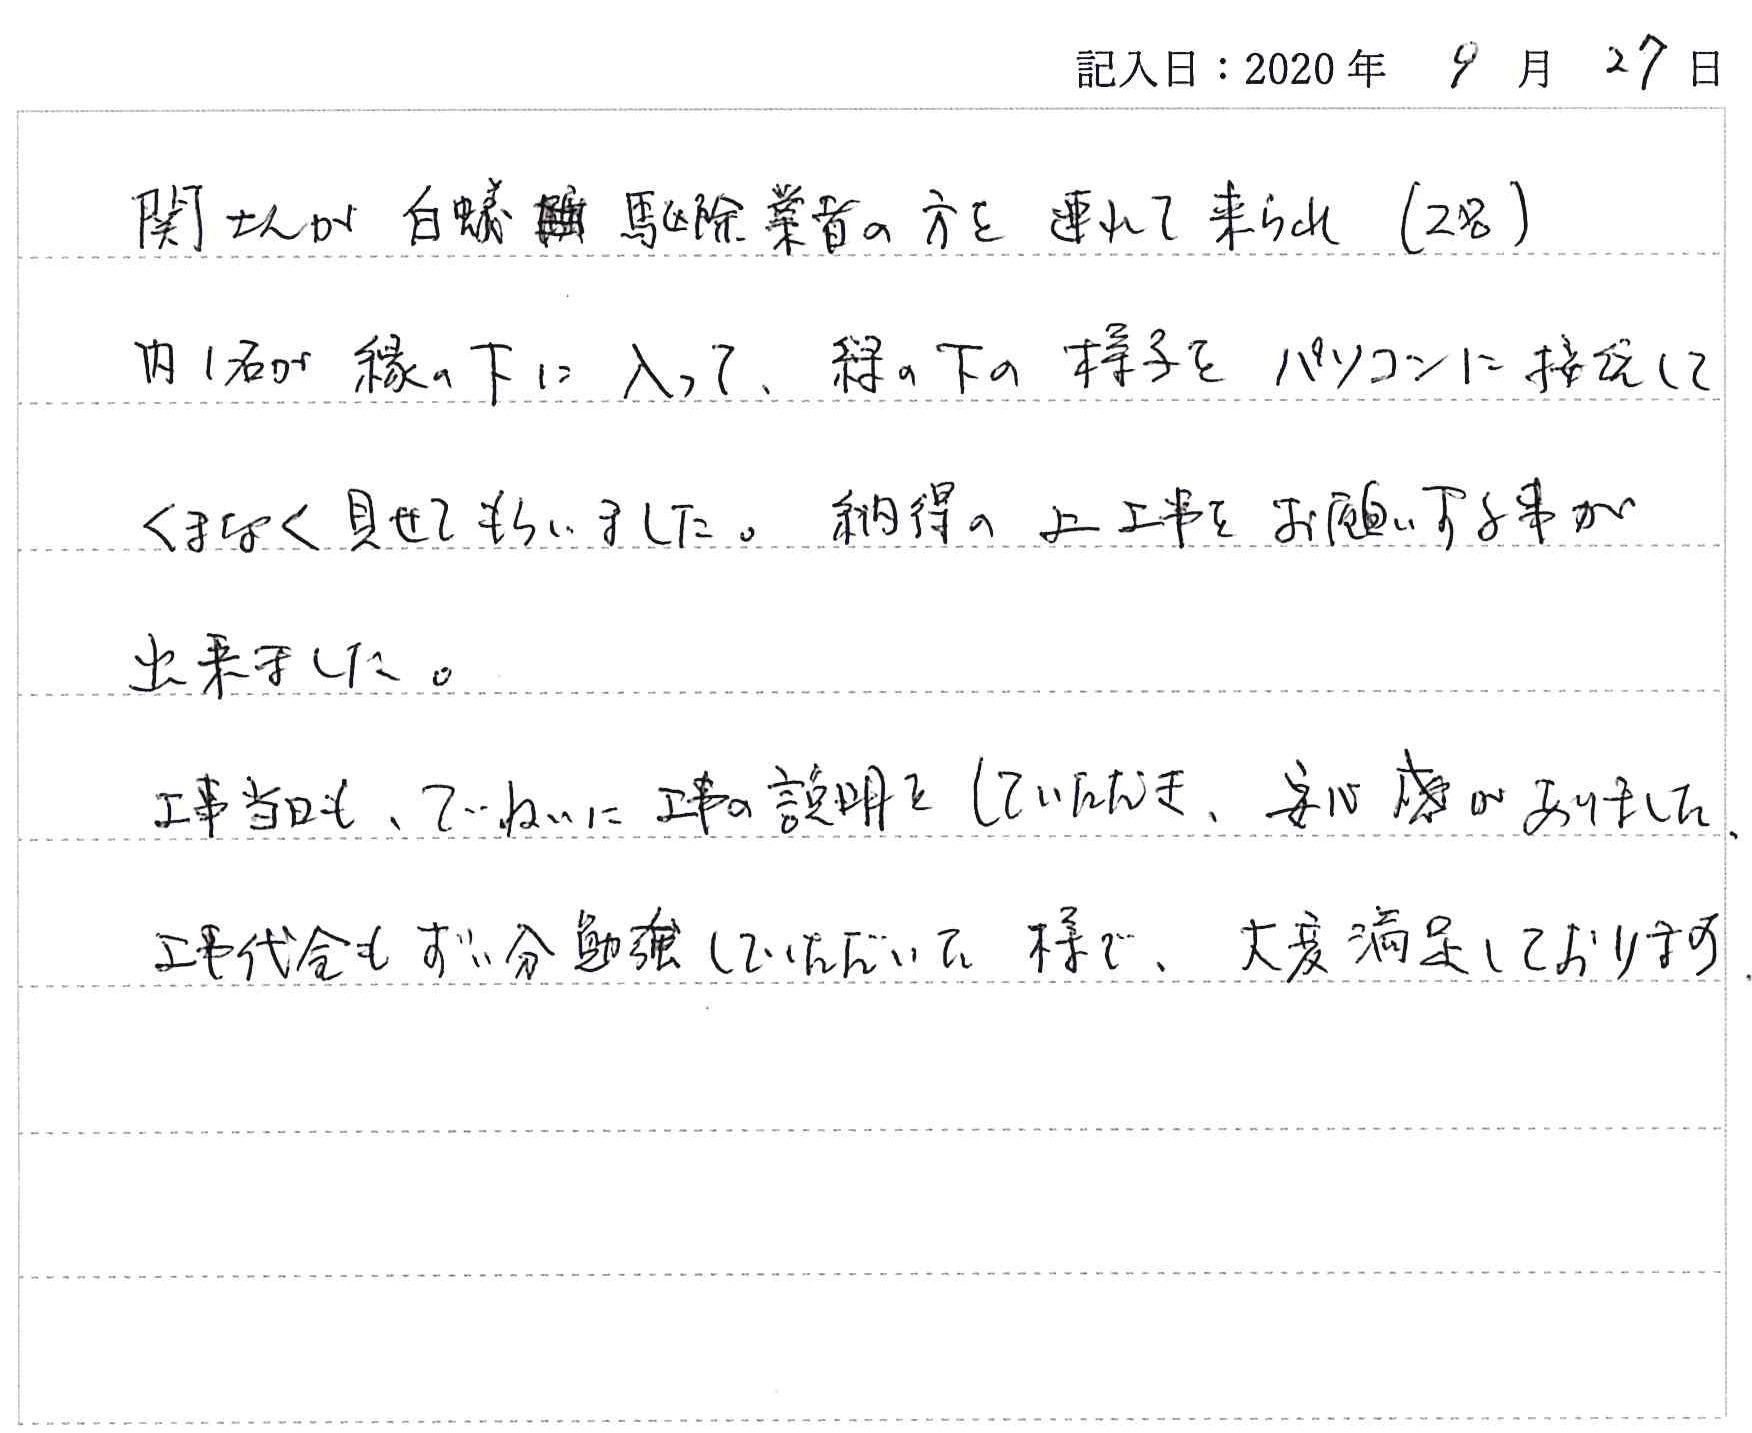 記入日：2020年 9月 27日
関さんが 白蟻 駆除業者の方を 連れて来られ (2名)
内1名が 縁の下に 入って、縁の下の 様子を パソコンに接続して
くまなく見せてもらいました。納得の上工事をお願いする事が
出来ました。
工事当日も、ていねいに工事の説明をしていただき、安心感がありました.
工事代金もずい分勉強していただいた様で、大変満足しております.